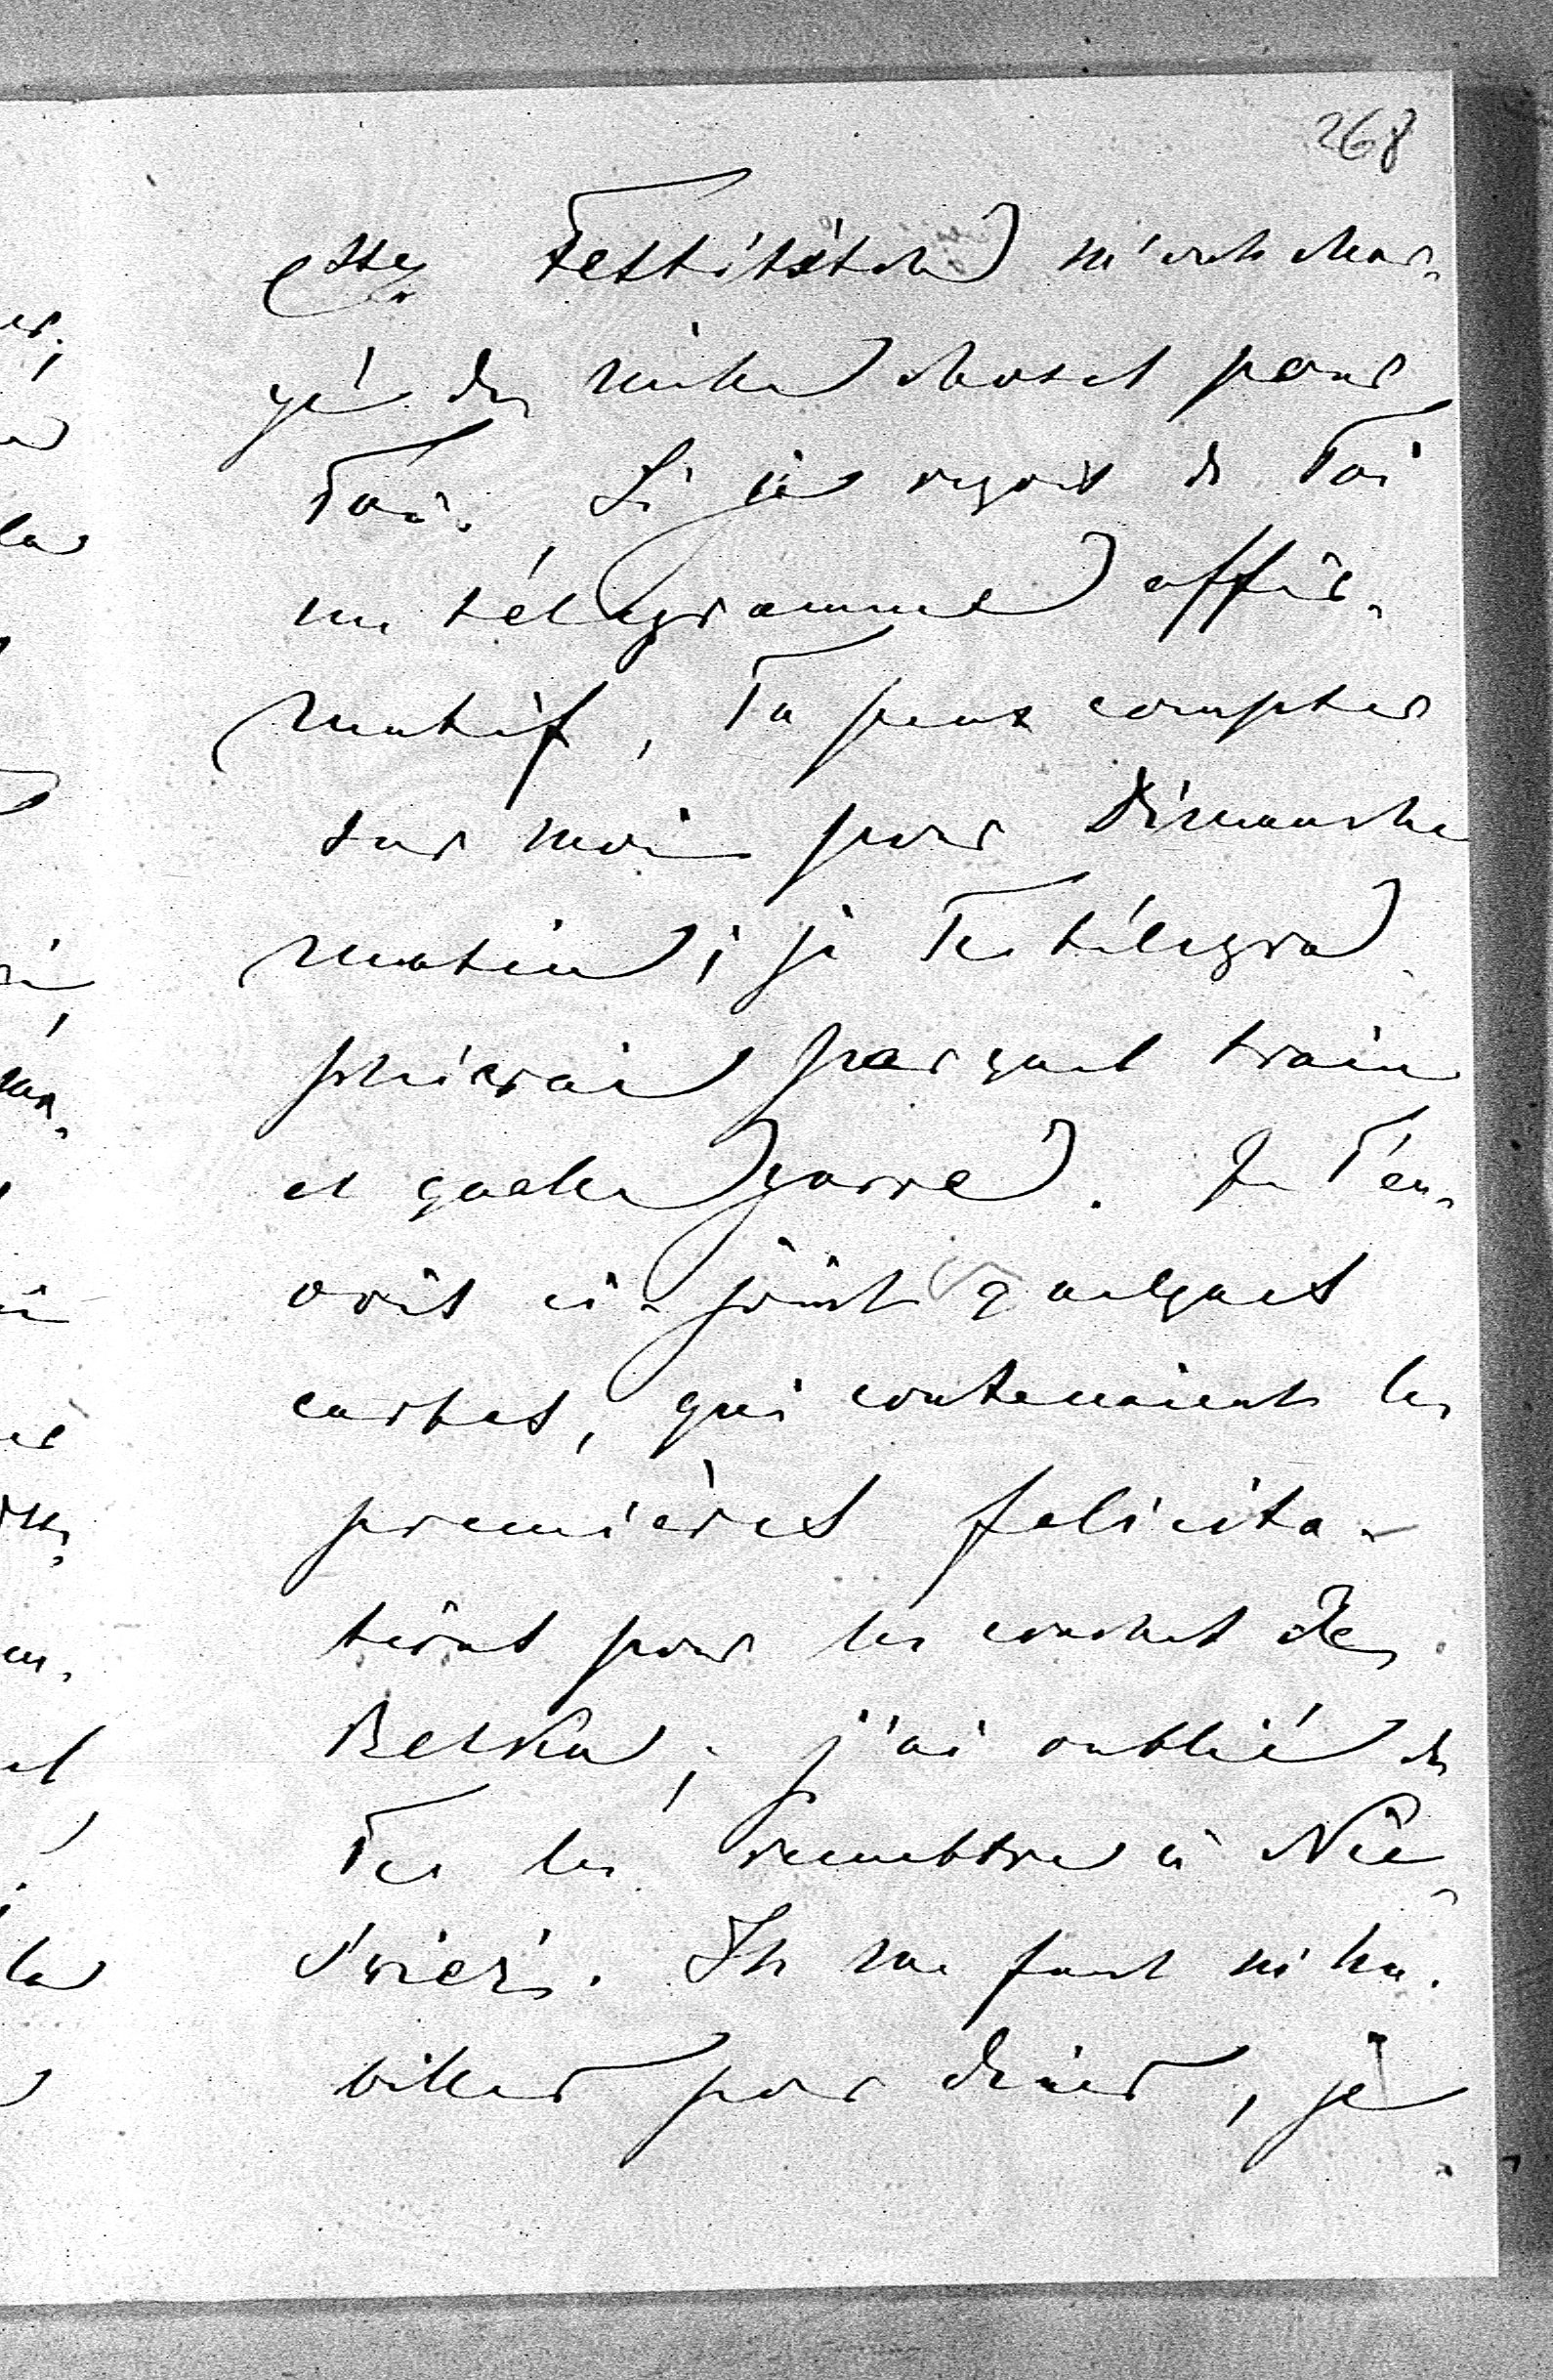 268
Csse Festititch m'ont char-
gé de mille choses pour
Toi. Si je reçois de Toi
un télégramme affir-
matif, Tu peux compter
sur moi pour Dimanche
matin; je Te télégra-
phierai par quel train
et quelle garre. Je T'en-
vois ci-joint quelques
cartes, qui contenaient les
premières felicita-
tions pour les couches de
Betka; j'ai oublié de
Te les remettre à Nie-
świez. Il me faut m'ha-
biller pour diner, je